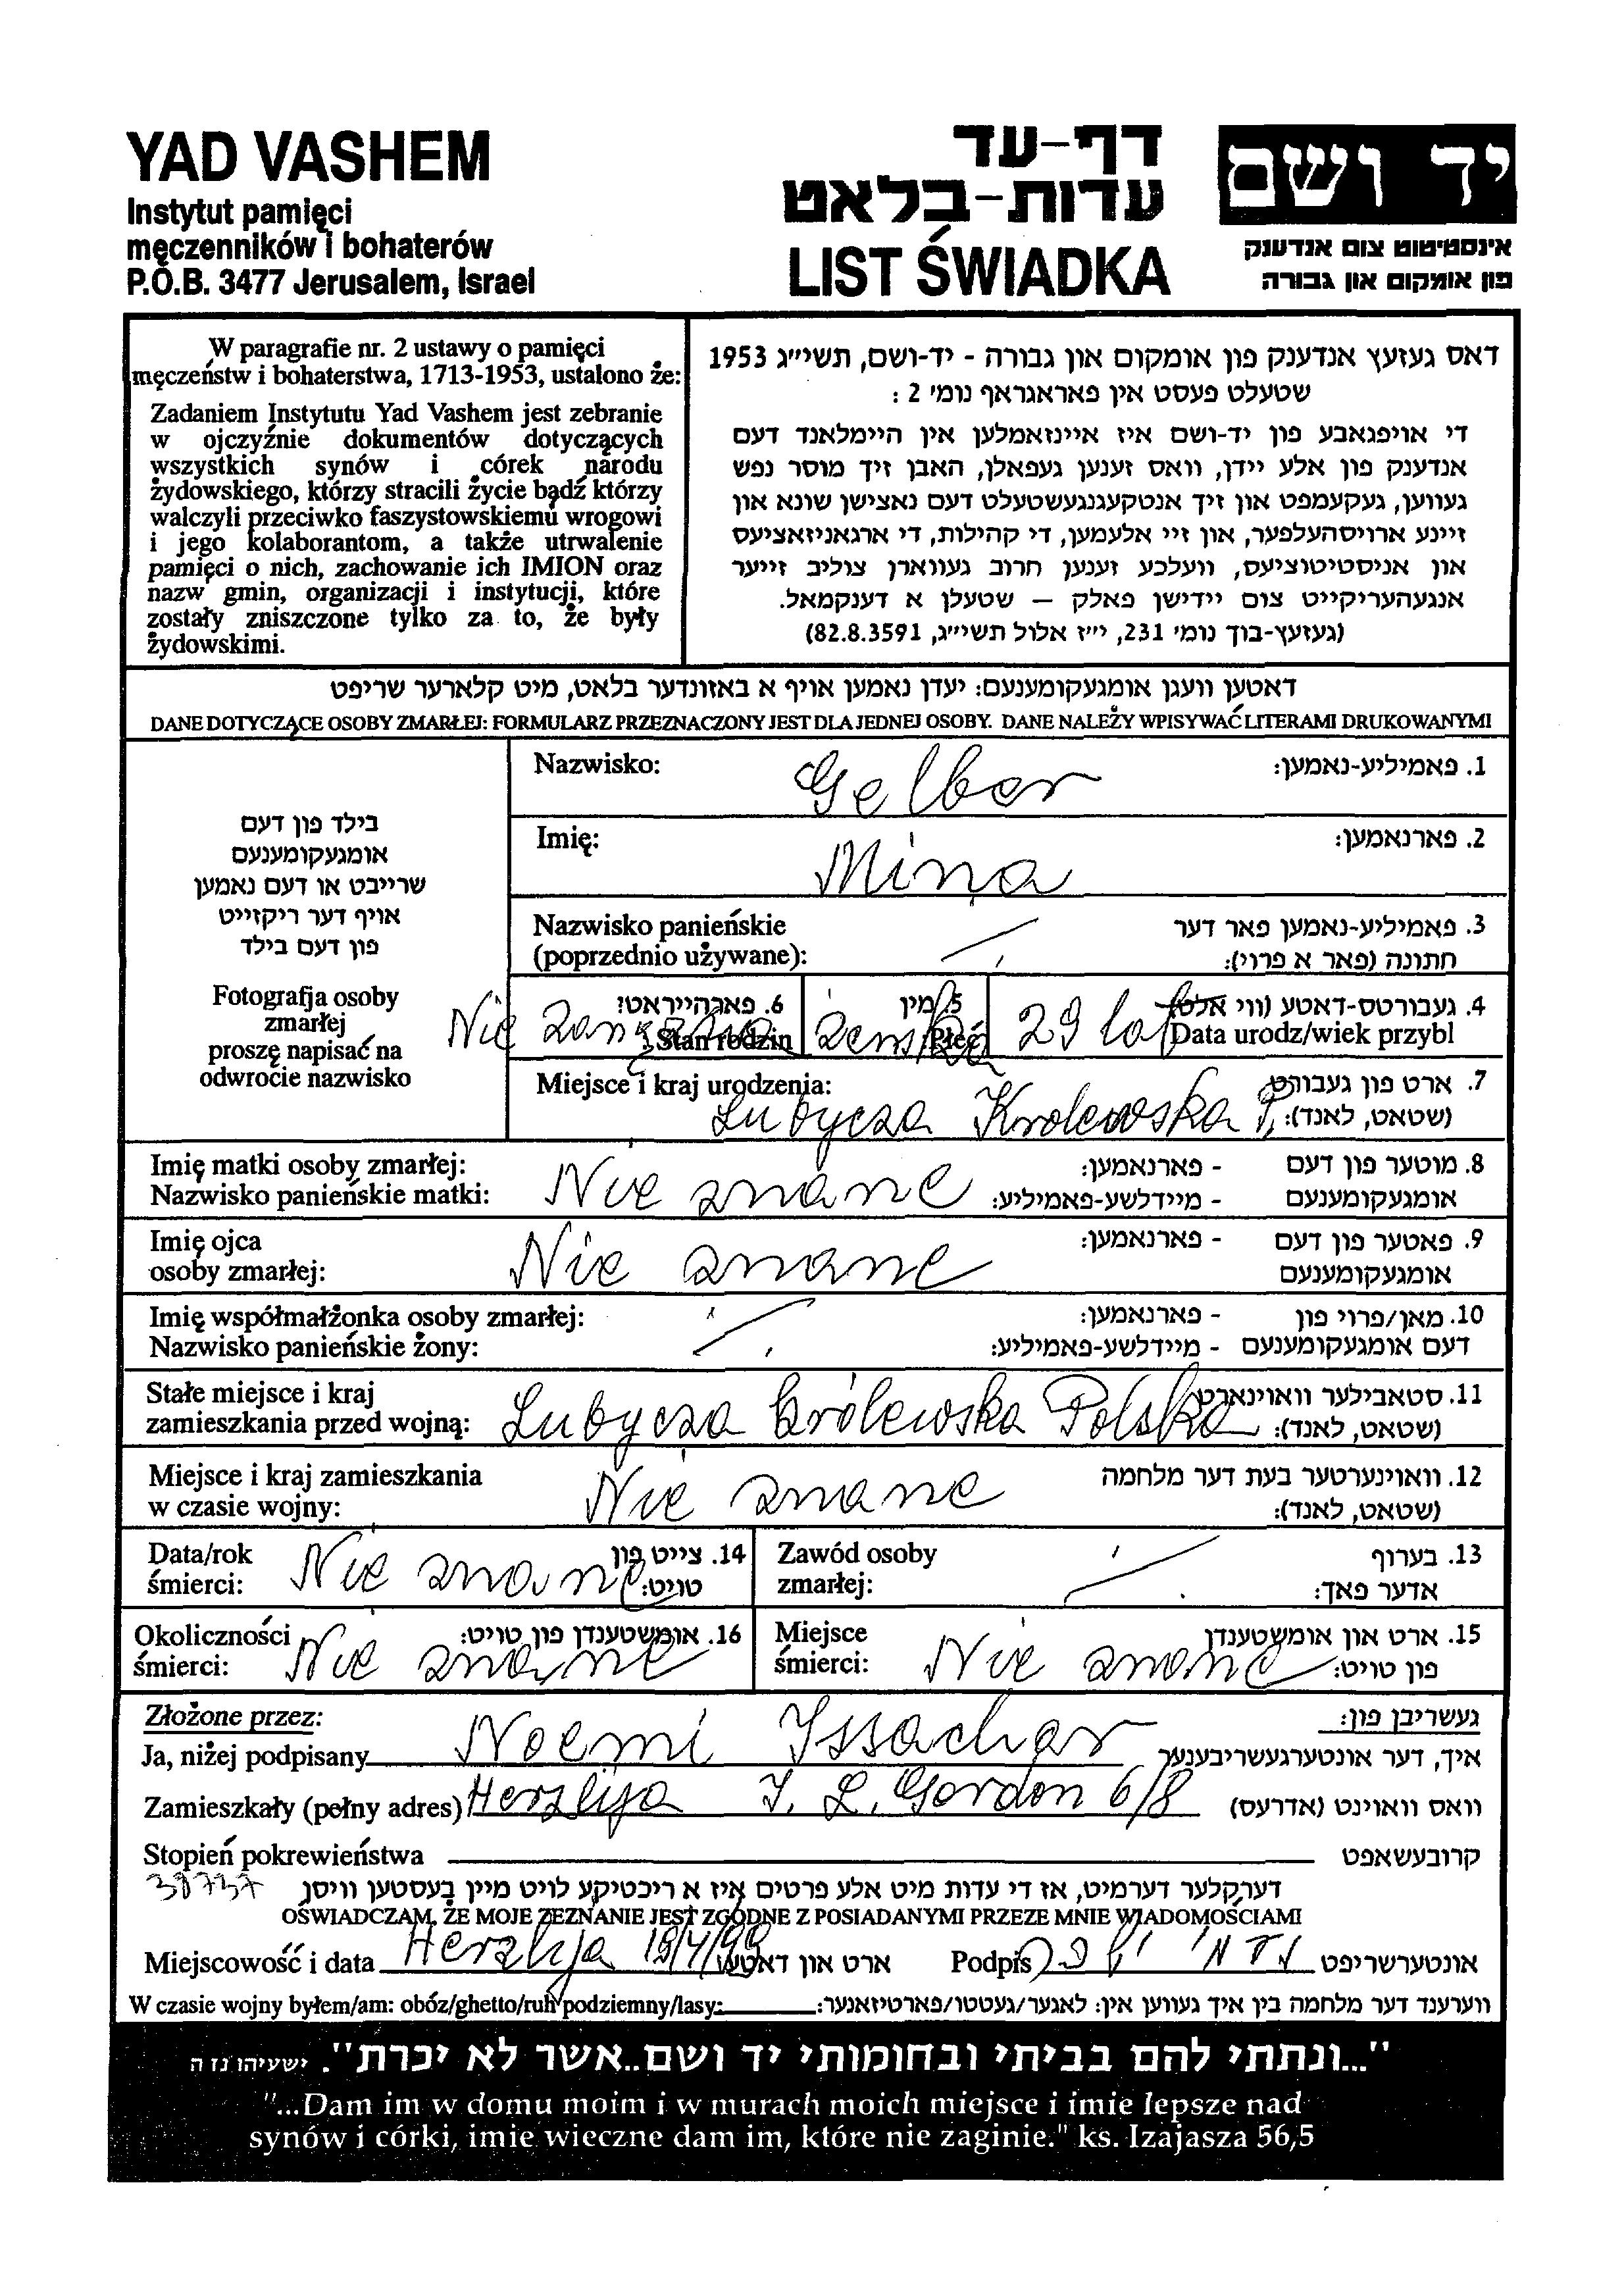 YAD VASHEM
Instytut pamięci
męczenników i bohaterów
P.O.B. 3477 Jerusalem, Israel
דף-עד
עדות-בלאט
LIST ŚWIADKA
יד ושם
אינסטיטוט צום אנדענק
פון אומקום און גבורה
W paragrafie nr. 2 ustawy o pamięci
męczeństw i bohaterstwa, 1713-1953, ustalono że:
Zadaniem Instytutu Yad Vashem jest zebranie
w ojczyźnie dokumentów dotyczących
wszystkich synów i córek narodu
żydowskiego, którzy stracili życie bądź którzy
walczyli przeciwko faszystowskiemu wrogowi
i jego kolaborantom, a także utrwalenie
pamięci o nich, zachowanie ich IMION oraz
nazw gmin, organizacji i instytucji, które
zostały zniszczone tylko za to, że były
żydowskimi.
דאס געזעץ אנדענק פון אומקום און גבורה - יד-ושם, תשי״ג 1953
שטעלט פעסט אין פאראגראף נומ׳ 2 :
די אויפגאבע פון יד-ושם איז איינזאמלען אין היימלאנד דעם
אנדענק פון אלע יידן, וואס זענען געפאלן, האבן זיך מוסר נפש
געווען, געקעמפט און זיך אנטקעגנגעשטעלט דעם נאצישן שונא און
זיינע ארויסהעלפער, און זיי אלעמען, די קהילות, די ארגאניזאציעס
און אניסטיטוציעס, וועלכע זענען חרוב געווארן צוליב זייער
אנגעהעריקייט צום יידישן פאלק – שטעלן א דענקמאל.
(געזעץ-בוך נומ׳ 231, י״ז אלול תשי״ג, 82.8.3591)
דאטען וועגן אומגעקומענעם: יעדן נאמען אויף א באזונדער בלאט, מיט קלארער שריפט
DANE DOTYCZĄCE OSOBY ZMARŁEJ: FORMULARZ PRZEZNACZONY JEST DLA JEDNEJ OSOBY. DANE NALEŻY WPISYWAĆ LITERAMI DRUKOWANYMI
בילד פון דעם
אומגעקומענעם
שרייבט או דעם נאמען
אויף דער ריקזייט
פון דעם בילד
Fotografja osoby
zmarłej
proszę napisać na
odwrocie nazwisko
Nazwisko: Gelber 1. פאמיליע-נאמען:
Imię: Mina 2. פארנאמען:
Nazwisko panieńskie 3. פאמיליע-נאמען פאר דער
(poprzednio używane): חתונה (פאר א פרוי):
6. פארהייראט? 5. מין 4. געבורטס-דאטע (ווי אלט)
Nie zamężna Stan rodzin żeńska Płeć 29 lat Data urodz/wiek przybl
Miejsce i kraj urodzenia: 7. ארט פון געבורט
Lubycza Krolewska P. (שטאט, לאנד):
Imię matki osoby zmarłej: - פארנאמען: 8. מוטער פון דעם
Nazwisko panieńskie matki: Nie znane - מיידלשע-פאמיליע: אומגעקומענעם
Imię ojca - פארנאמען: 9. פאטער פון דעם
osoby zmarłej: Nie znane אומגעקומענעם
Imię współmałżonka osoby zmarłej: - פארנאמען: 10. מאן/פרוי פון
Nazwisko panieńskie żony: - מיידלשע-פאמיליע: דעם אומגעקומענעם
Stałe miejsce i kraj 11. סטאבילער וואוינארט
zamieszkania przed wojną: Lubycza Królewska Polska (שטאט, לאנד):
Miejsce i kraj zamieszkania 12. וואוינערטער בעת דער מלחמה
w czasie wojny: Nie znane (שטאט, לאנד):
Data/rok 14. צייט פון Zawód osoby 13. בערוף
śmierci: Nie znane טויט: zmarłej: אדער פאך:
Okoliczności 16. אומשטענדן פון טויט: Miejsce 15. ארט און אומשטענדן
śmierci: Nie znane śmierci: Nie znane פון טויט:
Złożone przez: געשריבן פון:
Ja, niżej podpisany Noemi Issachar איך, דער אונטערגעשריבענער
Zamieszkały (pełny adres) Herzlija J. L. Gordon 6/8 וואס וואוינט (אדרעס)
Stopień pokrewieństwa קרובעשאפט
38737 דערקלער דערמיט, אז די עדות מיט אלע פרטים איז א ריכטיקע לויט מיין בעסטען וויסן
OŚWIADCZAM, ŻE MOJE ZEZNANIE JEST ZGODNE Z POSIADANYMI PRZEZE MNIE WIADOMOŚCIAMI
Miejscowość i data Herzlija 19/4/99 ארט און דאטע Podpis אונטערשריפט
W czasie wojny byłem/am: obóz/ghetto/ruh podziemny/lasy: ווערענד דער מלחמה בין איך געווען אין: לאגער/געטטו/פארטיזאנער:
"...ונתתי להם בביתי ובחומותי יד ושם..אשר לא יכרת". ישעיהו נז ה
"...Dam im w domu moim i w murach moich miejsce i imie lepsze nad
synów i córki, imie wieczne dam im, które nie zaginie." ks. Izajasza 56,5